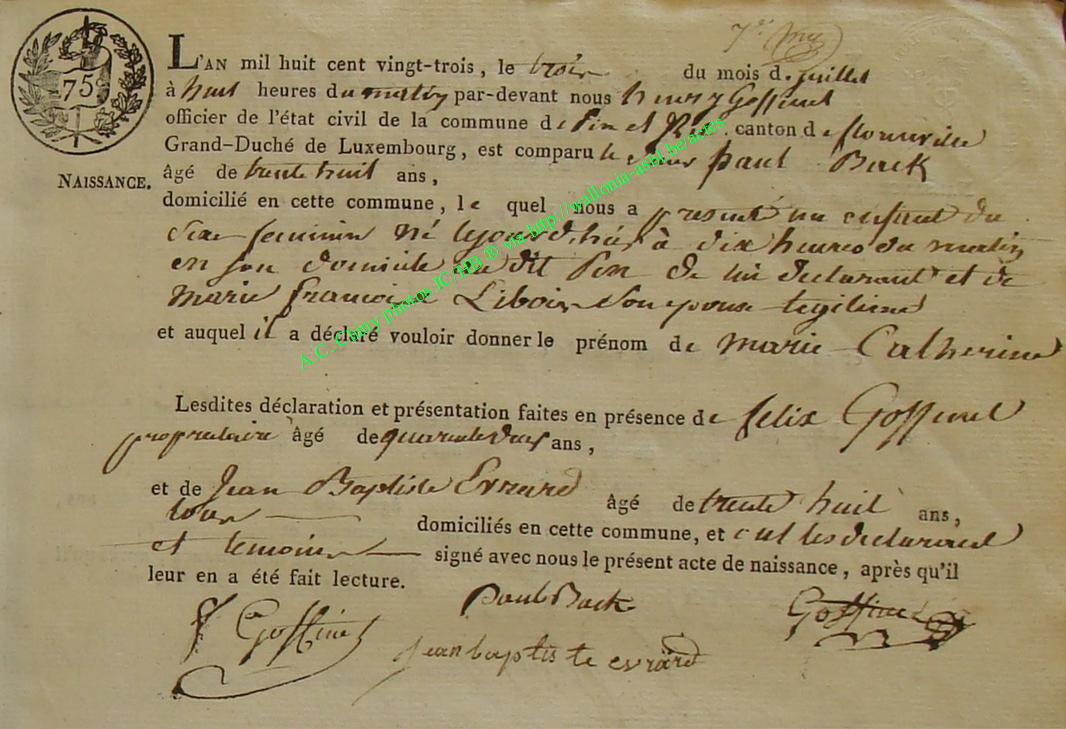 75
L'AN mil huit cent vingt-trois, le trois du mois de juillet
à huit heures du matin par-devant nous henry Goffinet
officier de l'état civil de la commune de Pin et canton de florenville
Grand-Duché de Luxembourg, est comparu le Sieur paul Back
NAISSANCE.
âgé de trente huit ans,
domicilié en cette commune, le quel nous a presenté un enfant du
Sexe feminin né à dix heures du matin
en son domicile dit Pin de lui declarant et de
marie francoise Liboix Son epouse legitime
et auquel il a déclaré vouloir donner le prénom de marie Catherine
Lesdites déclaration et présentation faites en présence de félix Goffinet
propriétaire âgé de quarante deux ans,
et de Jean Baptiste Evrard âgé de trente huit ans,
tous domiciliés en cette commune, et les declarant
et temoins signé avec nous le présent acte de naissance, après qu'il
leur en a été fait lecture.
f Goffinet
paul Back
Goffinet
jean baptiste evrard
A.C. Chiny photos IC/HB ® via http://wallonia-asbl.be/actes